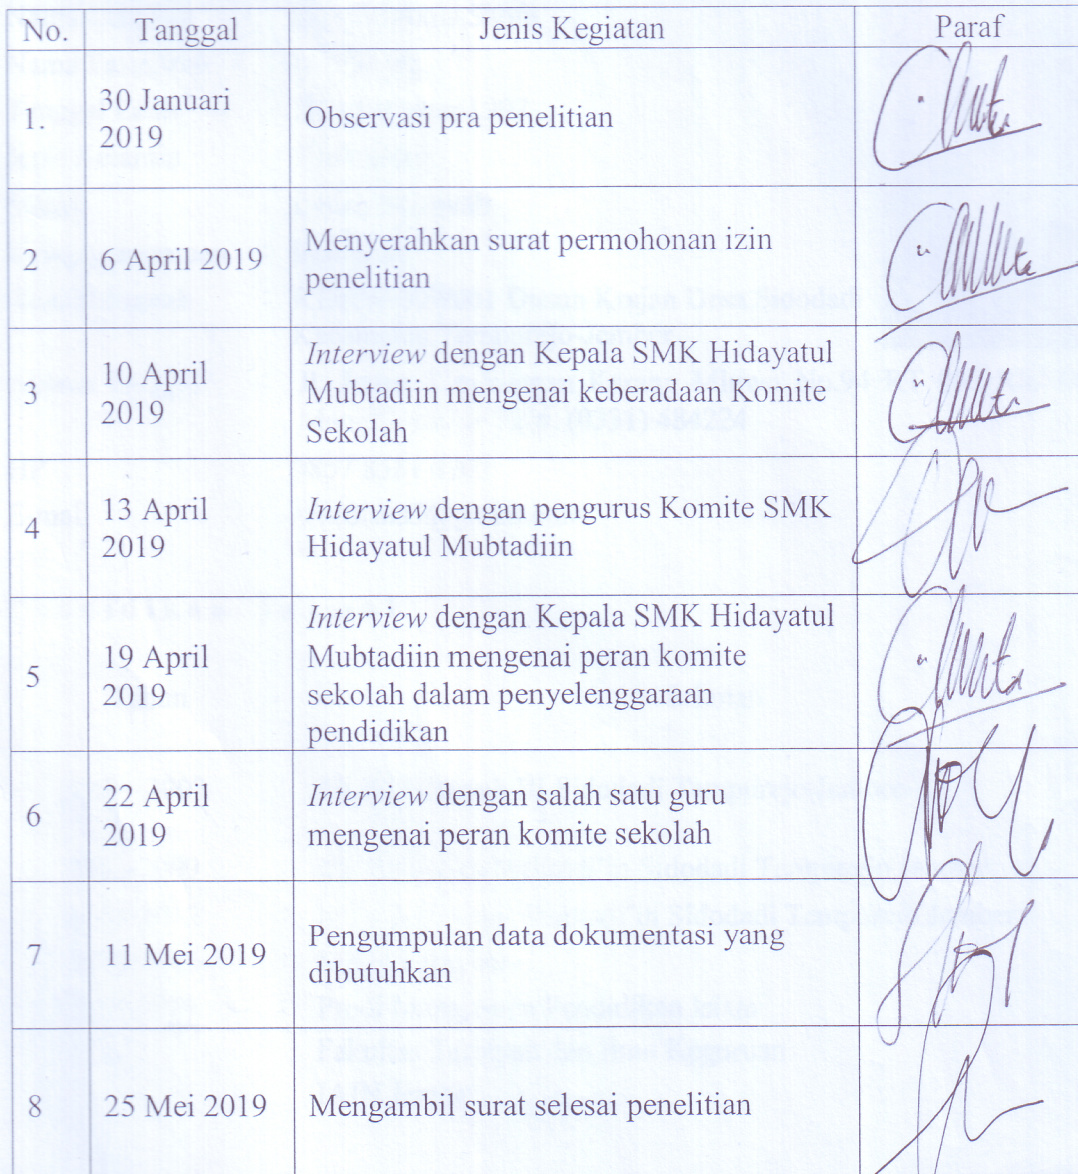 No. Tanggal Jenis Kegiatan Paraf
1. 30 Januari
2019
Observasi pra penelitian
2 6 April 2019 Menyerahkan surat permohonan izin
penelitian
3 10 April
2019
Interview dengan Kepala SMK Hidayatul
Mubtadiin mengenai keberadaan Komite
Sekolah
4 13 April
2019
Interview dengan pengurus Komite SMK
Hidayatul Mubtadiin
5 19 April
2019
Interview dengan Kepala SMK Hidayatul
Mubtadiin mengenai peran komite
sekolah dalam penyelenggaraan
pendidikan
6 22 April
2019
Interview dengan salah satu guru
mengenai peran komite sekolah
7 11 Mei 2019 Pengumpulan data dokumentasi yang
dibutuhkan
8 25 Mei 2019 Mengambil surat selesai penelitian